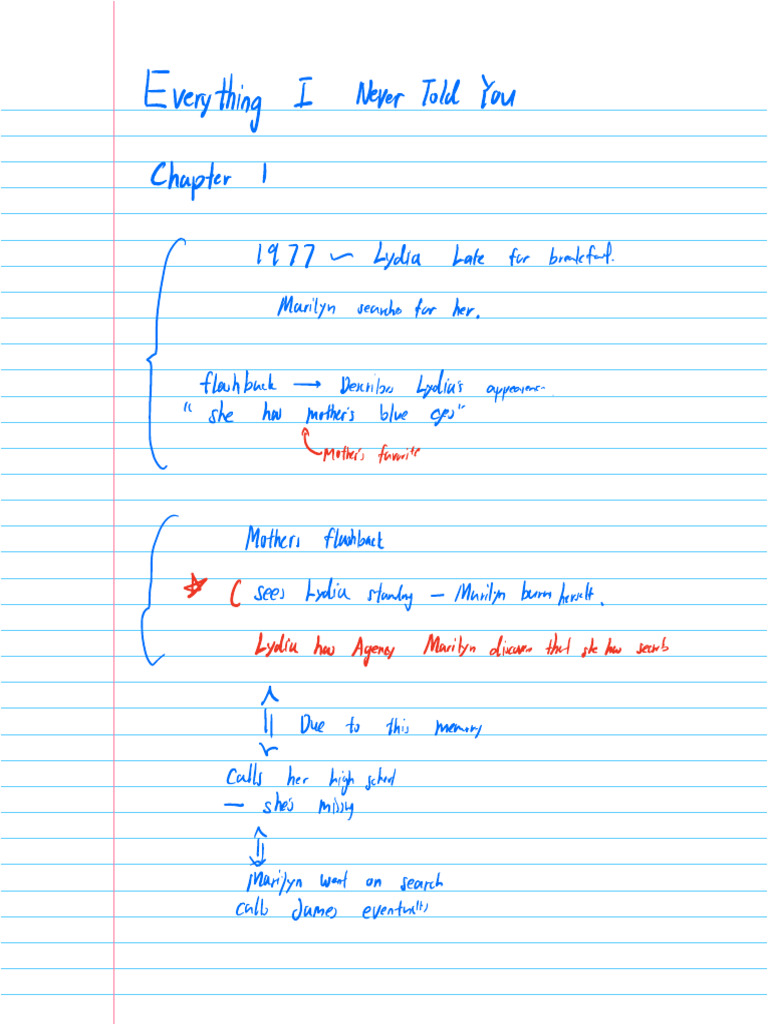 Everything I Never Told You
Chapter 1
1977 ~ Lydia Late for breakfast.
Marilyn searches for her.
flashback → Describes Lydia's appearance
"she has mother's blue eyes"
Mother's favorite
Mothers flashback
sees Lydia standing – Marilyn burn herself.
Lydia has Agency Marilyn discovers that she has secrets
Due to this memory
Calls her high school
– she's missing
Marilyn went on search
calls James eventually